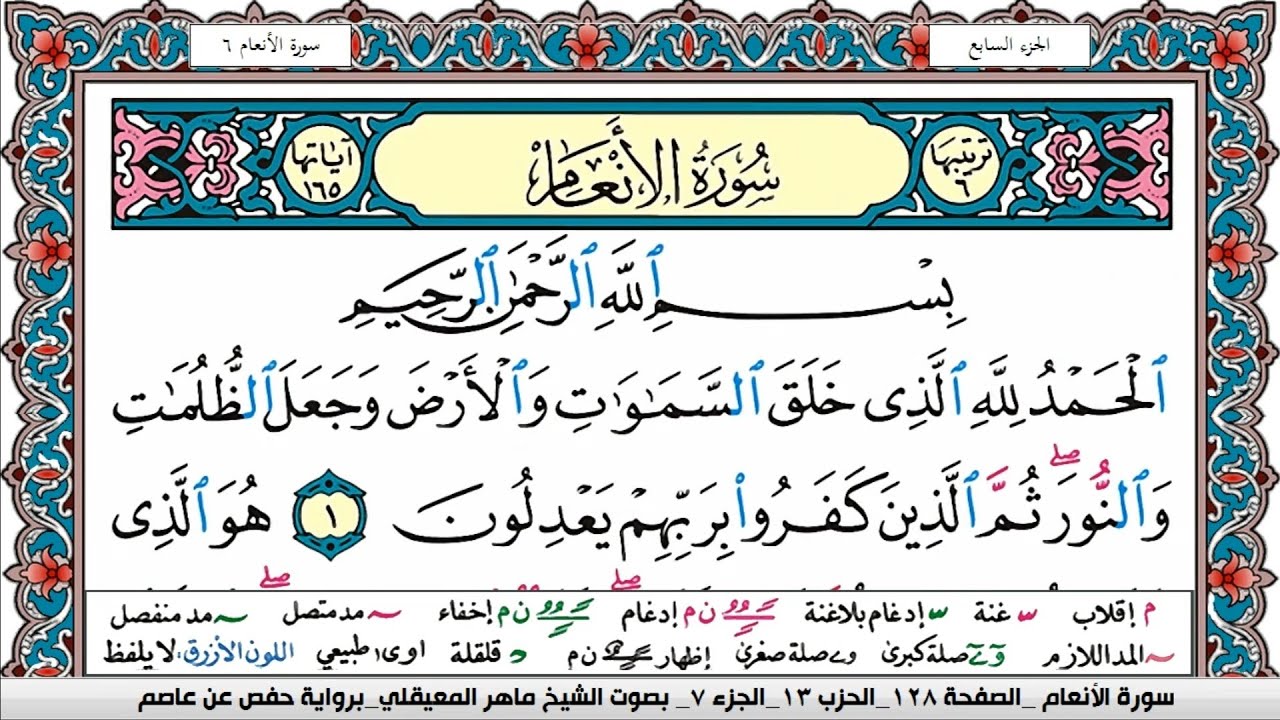 الجزء السابع
سورة الأنعام ٦
ترتيبها ٦
سُورَةُ الأَنْعَامِ
آياتها ١٦٥
بِسْمِ ٱللَّهِ ٱلرَّحْمَٰنِ ٱلرَّحِيمِ
ٱلْحَمْدُ لِلَّهِ ٱلَّذِى خَلَقَ ٱلسَّمَٰوَٰتِ وَٱلْأَرْضَ وَجَعَلَ ٱلظُّلُمَٰتِ
وَٱلنُّورَ ۖ ثُمَّ ٱلَّذِينَ كَفَرُوا۟ بِرَبِّهِمْ يَعْدِلُونَ ١ هُوَ ٱلَّذِى
م إقلاب س غنة س إدغام بلاغنة ن م إدغام ن م إخفاء ~ مد متصل ~ مد منفصل
~ المد اللازم و ے صلة كبرى و ے صلة صغرى إظهار ن م د قلقلة اوى ا طبيعي اللون الأزرق: لا يلفظ
سورة الأنعام _الصفحة ١٢٨_الحزب ١٣_الجزء ٧_ بصوت الشيخ ماهر المعيقلي_برواية حفص عن عاصم